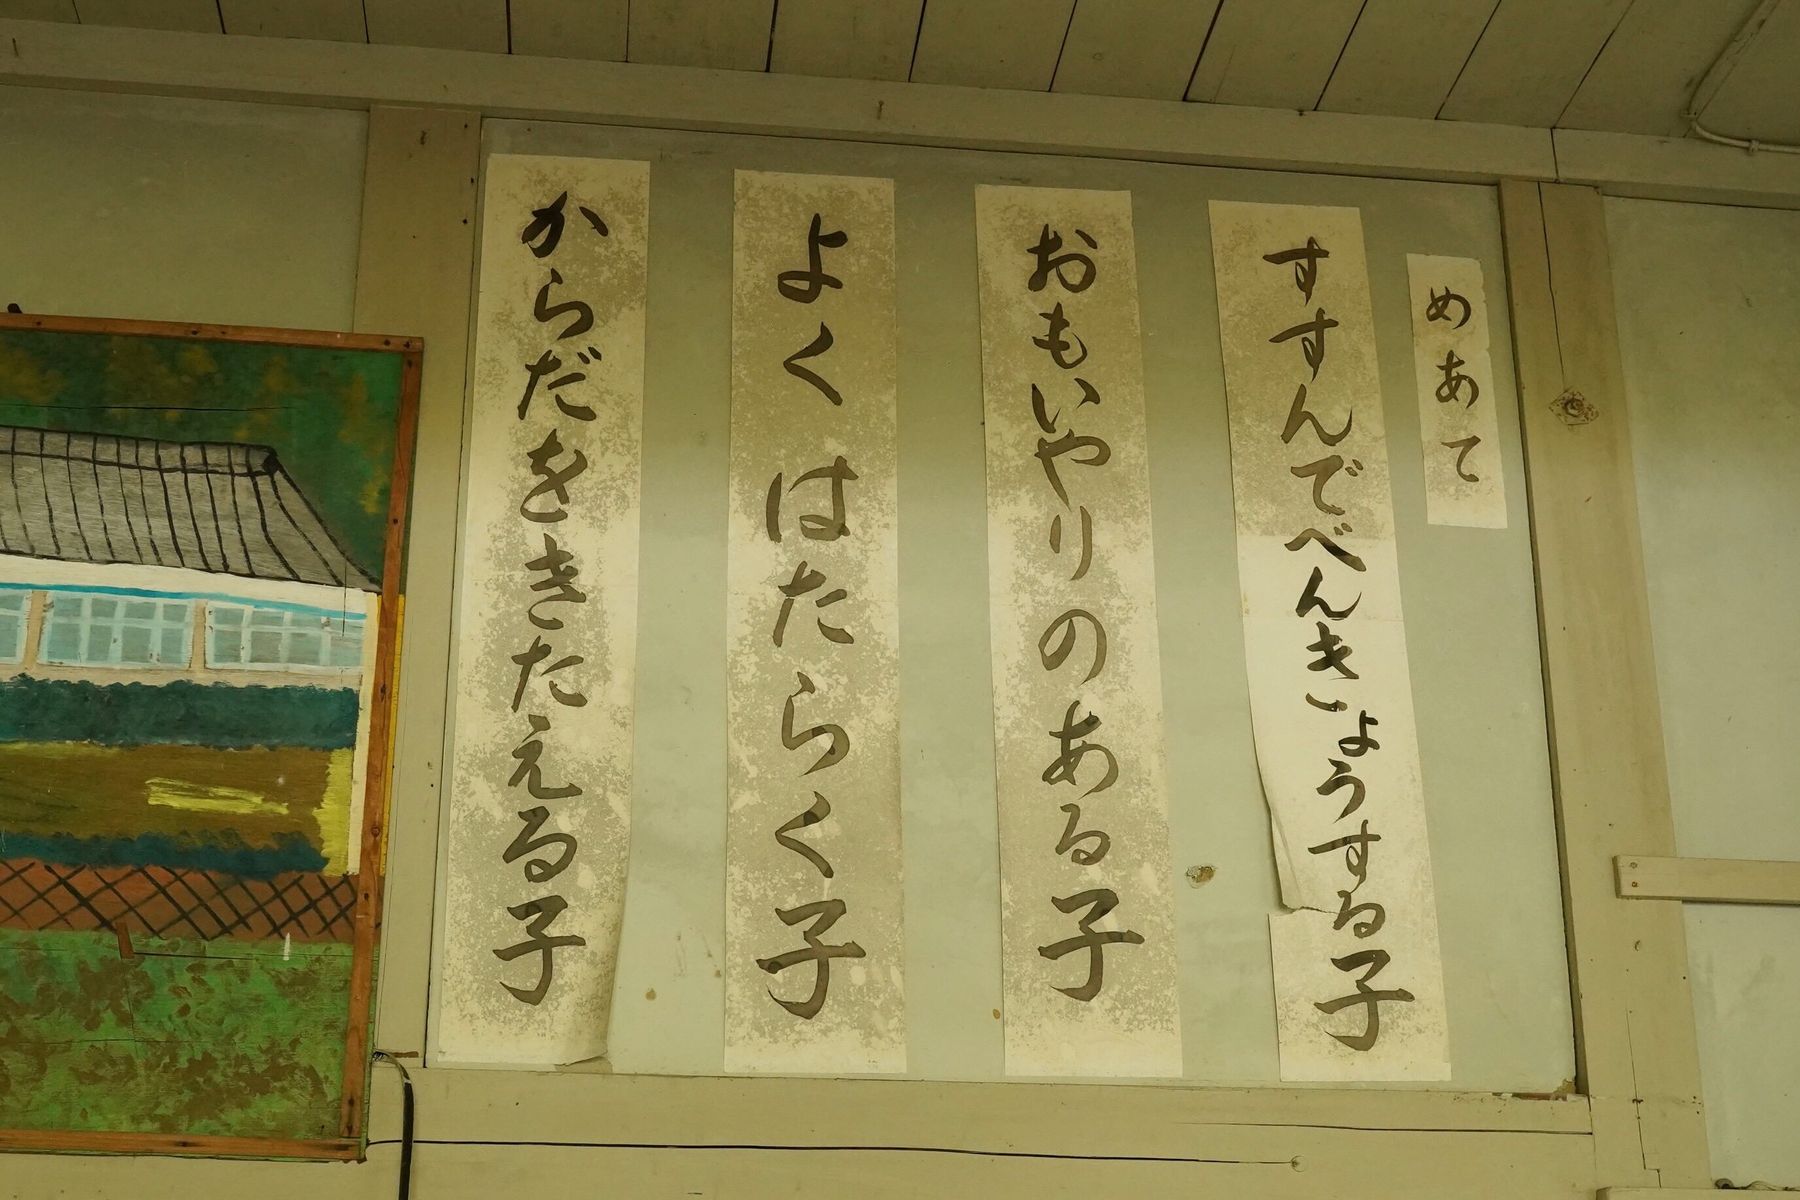 めあて
すすんでべんきょうする子
おもいやりのある子
よくはたらく子
からだをきたえる子